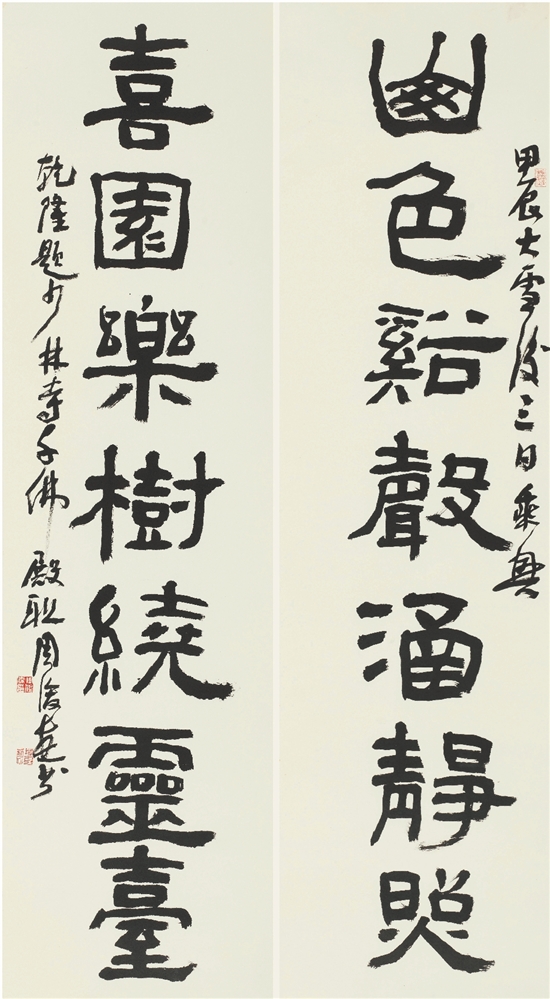 甲辰大雪後三日乘興
幽色谿聲涵靜照
喜園樂樹繞靈臺
乾隆題少林寺千佛殿聯周俊杰書